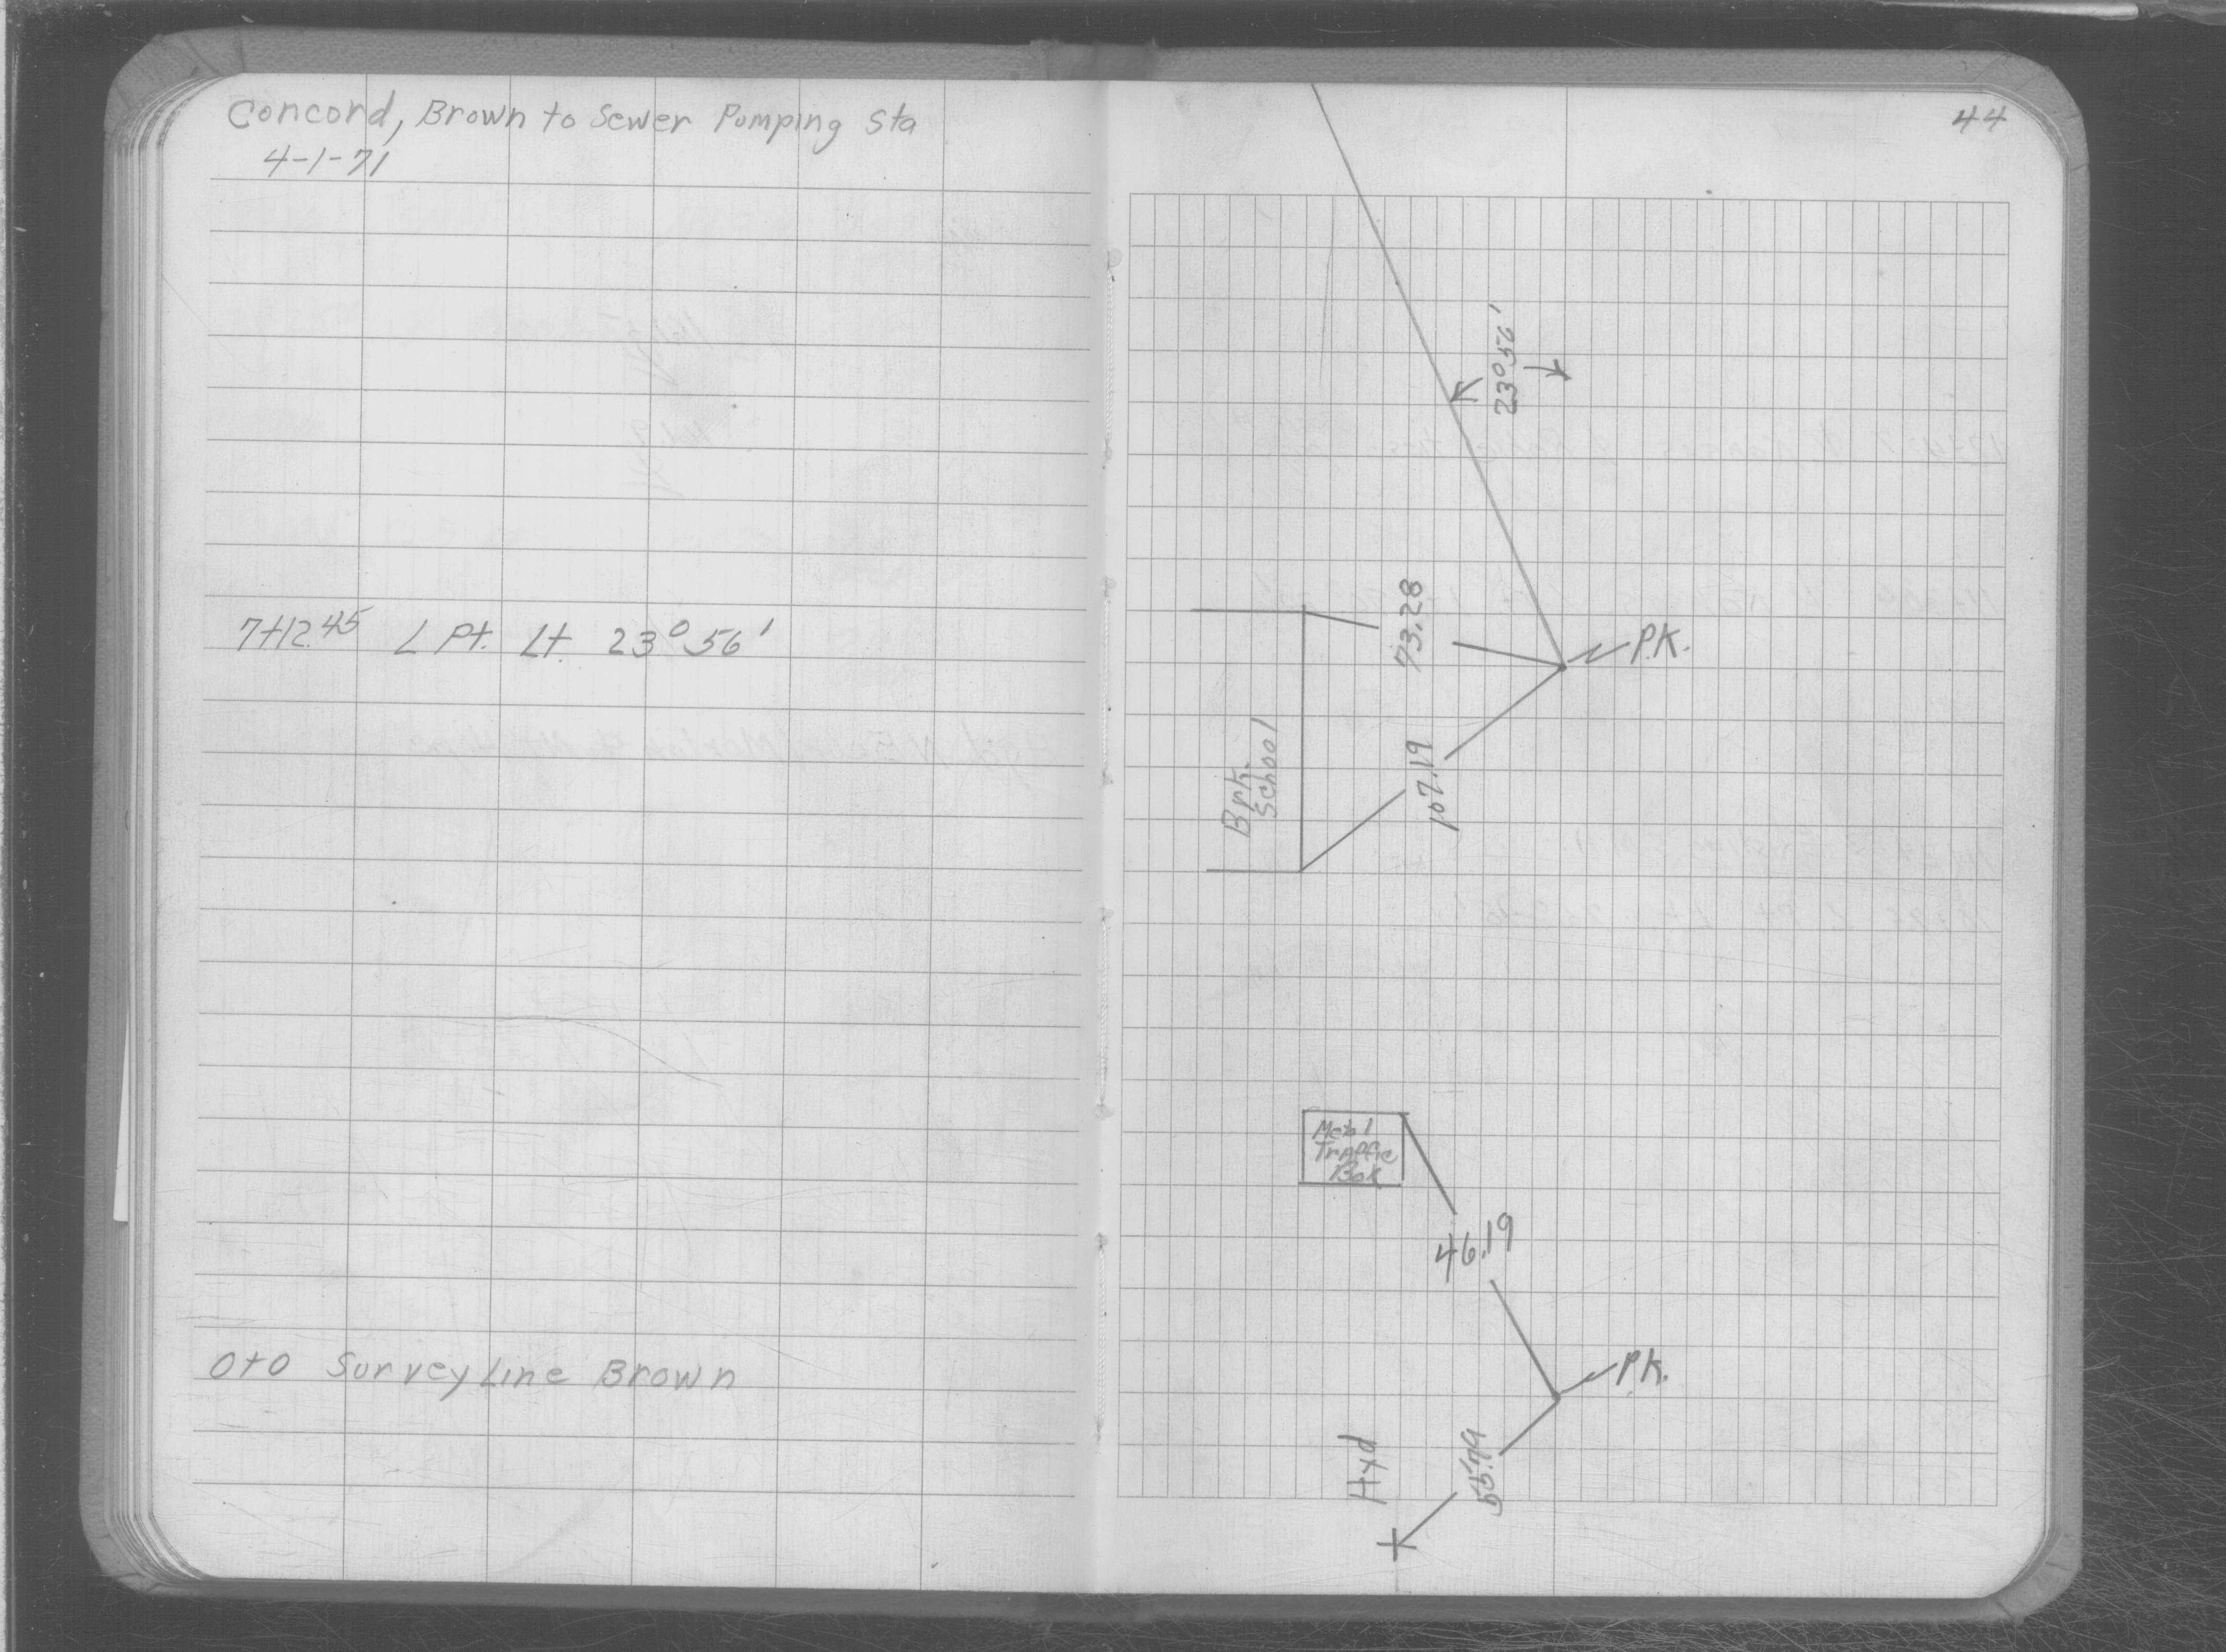 Concord, Brown to Sewer Pumping Sta
4-1-71
7+12.45 ∠ Pt. Lt. 23° 56'
0+0 Survey Line Brown
44
23° 56'
73.28
P.K.
107.19
Brk.
School
Metal
Traffic
Box
46.19
P.K.
Hyd
55.79